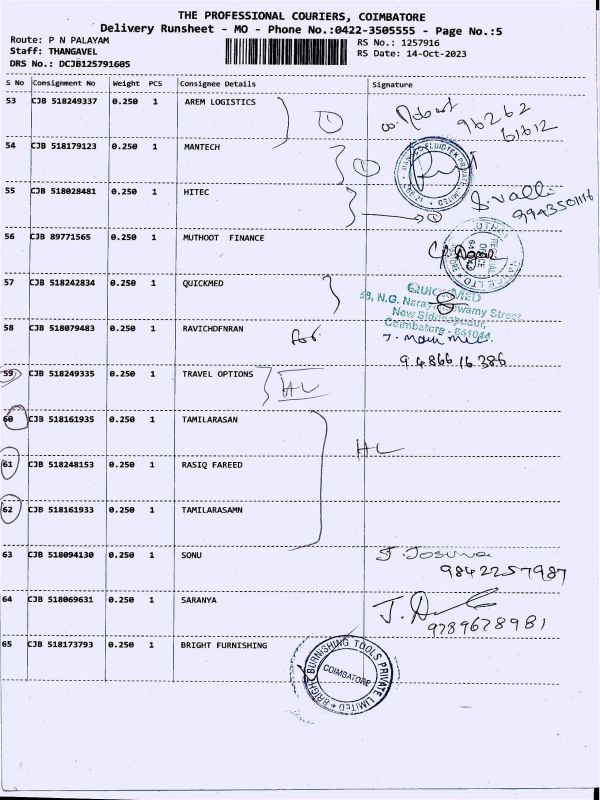 THE PROFESSIONAL COURIERS, COIMBATORE
Delivery Runsheet - MO - Phone No.:0422-3505555 - Page No.:5
Route: P N PALAYAM RS No.: 1257916
Staff: THANGAVEL RS Date: 14-Oct-2023
DRS No.: DCJB125791605
S No Consignment No Weight PCS Consignee Details Signature
53 CJB 518249337 0.250 1 AREM LOGISTICS 1 Robert
96262
61612
54 CJB 518179123 0.250 1 MANTECH 1
55 CJB 518028481 0.250 1 HITEC 1 S. Valli
56 CJB 89771565 0.250 1 MUTHOOT FINANCE
57 CJB 518242834 0.250 1 QUICKMED QUICKMED
58, N.G. Narayanaswamy Street
New Siddhapudur,
Coimbatore - 641044
58 CJB 518079483 0.250 1 RAVICHDFNRAN for
94866 16386
59 CJB 518249335 0.250 1 TRAVEL OPTIONS HL
60 CJB 518161935 0.250 1 TAMILARASAN
HL
61 CJB 518248153 0.250 1 RASIQ FAREED
62 CJB 518161933 0.250 1 TAMILARASAMN
63 CJB 518094130 0.250 1 SONU
9842257987
64 CJB 518069631 0.250 1 SARANYA
9789678981
65 CJB 518173793 0.250 1 BRIGHT FURNISHING
BURNISHING TOOLS PRIVATE LIMITED
COIMBATORE